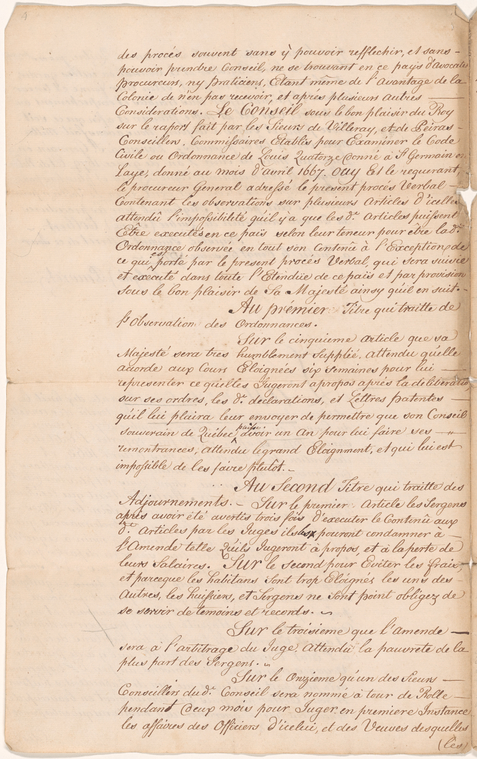 des procés souvent sans ÿ pouvoir refflechir, et sans
pouvoir prendre Conseil, ne se trouvant en ce pays d'avocats
procureurs, ny praticiens, Etant même de l'avantage de la
Colonie de n'en pas recevoir, et aprés plusieurs autres
Considerations. Le Conseil sous le bon plaisir du Roy
sur le raport fait par les Sieurs de Villeray, et de Peiras
Conseillers, Commissaires Etablis pour Examiner le Code
Civile ou Ordonnance de Louis Quatorze donné a St Germain en
Laye, donné au mois d'avril 1667. Ouy Et le requerant,
le procureur General adressé le present procés Verbal
Contenant les observations sur plusieurs Articles d'icelle
attendu l'impossibilité qu'il y a que les ds. Articles puissent
Etre executés en ce païs selon leur teneur pour être lad.
Ordonnance observée en tout son Contenu à l'Exception, de
ce qui est porté par le present procés Verbal qui sera suivie
et executé dans toute l'Etendüe de ce païs et par provision
sous le bon plaisir de Sa Majesté ainsy qu'il en suit.
Au prémier Titre qui traitte de
l'observation des Ordonnances.
Sur le cinquieme article que sa
Majesté sera tres humblement Supplié, attendu qu'elle
accorde aux Cours Eloignées six Semaines pour lui
representer ce qu'elles Jugeront apropos aprés la deliberation
sur ses ordres, les ds. déclarations, et Lettres Patentes
qu'il lui plaira leur envoyer de permettre que son Conseil
souverain de Québec puisse avoir un An pour lui faire ses
remontrances, attendu le grand Eloignment, et qu'il lui est
impossible de les faire plutot.
Au Second Titre qui traitte des
Adjournements. Sur le premier Article les Sergens
aprés avoir été avertis trois fois d'executer le Contenu aux
ds. Articles par les Juges ils les pouront condamner à
l'Amende telle Quils Jugeront à propos, et à la perte de
leurs Salaires. Sur le second pour Eviter les fraix
et parceque les habitans Sont trop Eloignés les uns des
Autres, les huissiers, et Sergens ne Sont point obligez de
se servir de temoins et records.
Sur le troisieme que l'Amende
sera à l'arbitrage du Juge, Attendu la pauvreté de la
plus part des Sergent.
Sur le Onzieme qu'un des Sieurs
Conseillers dud. Conseil sera nommé à tour de Rolle
pendant deux mois pour Juger en premiere Instance
les affaires des Officiers d'icelui, et des Veuves desquelles
(les